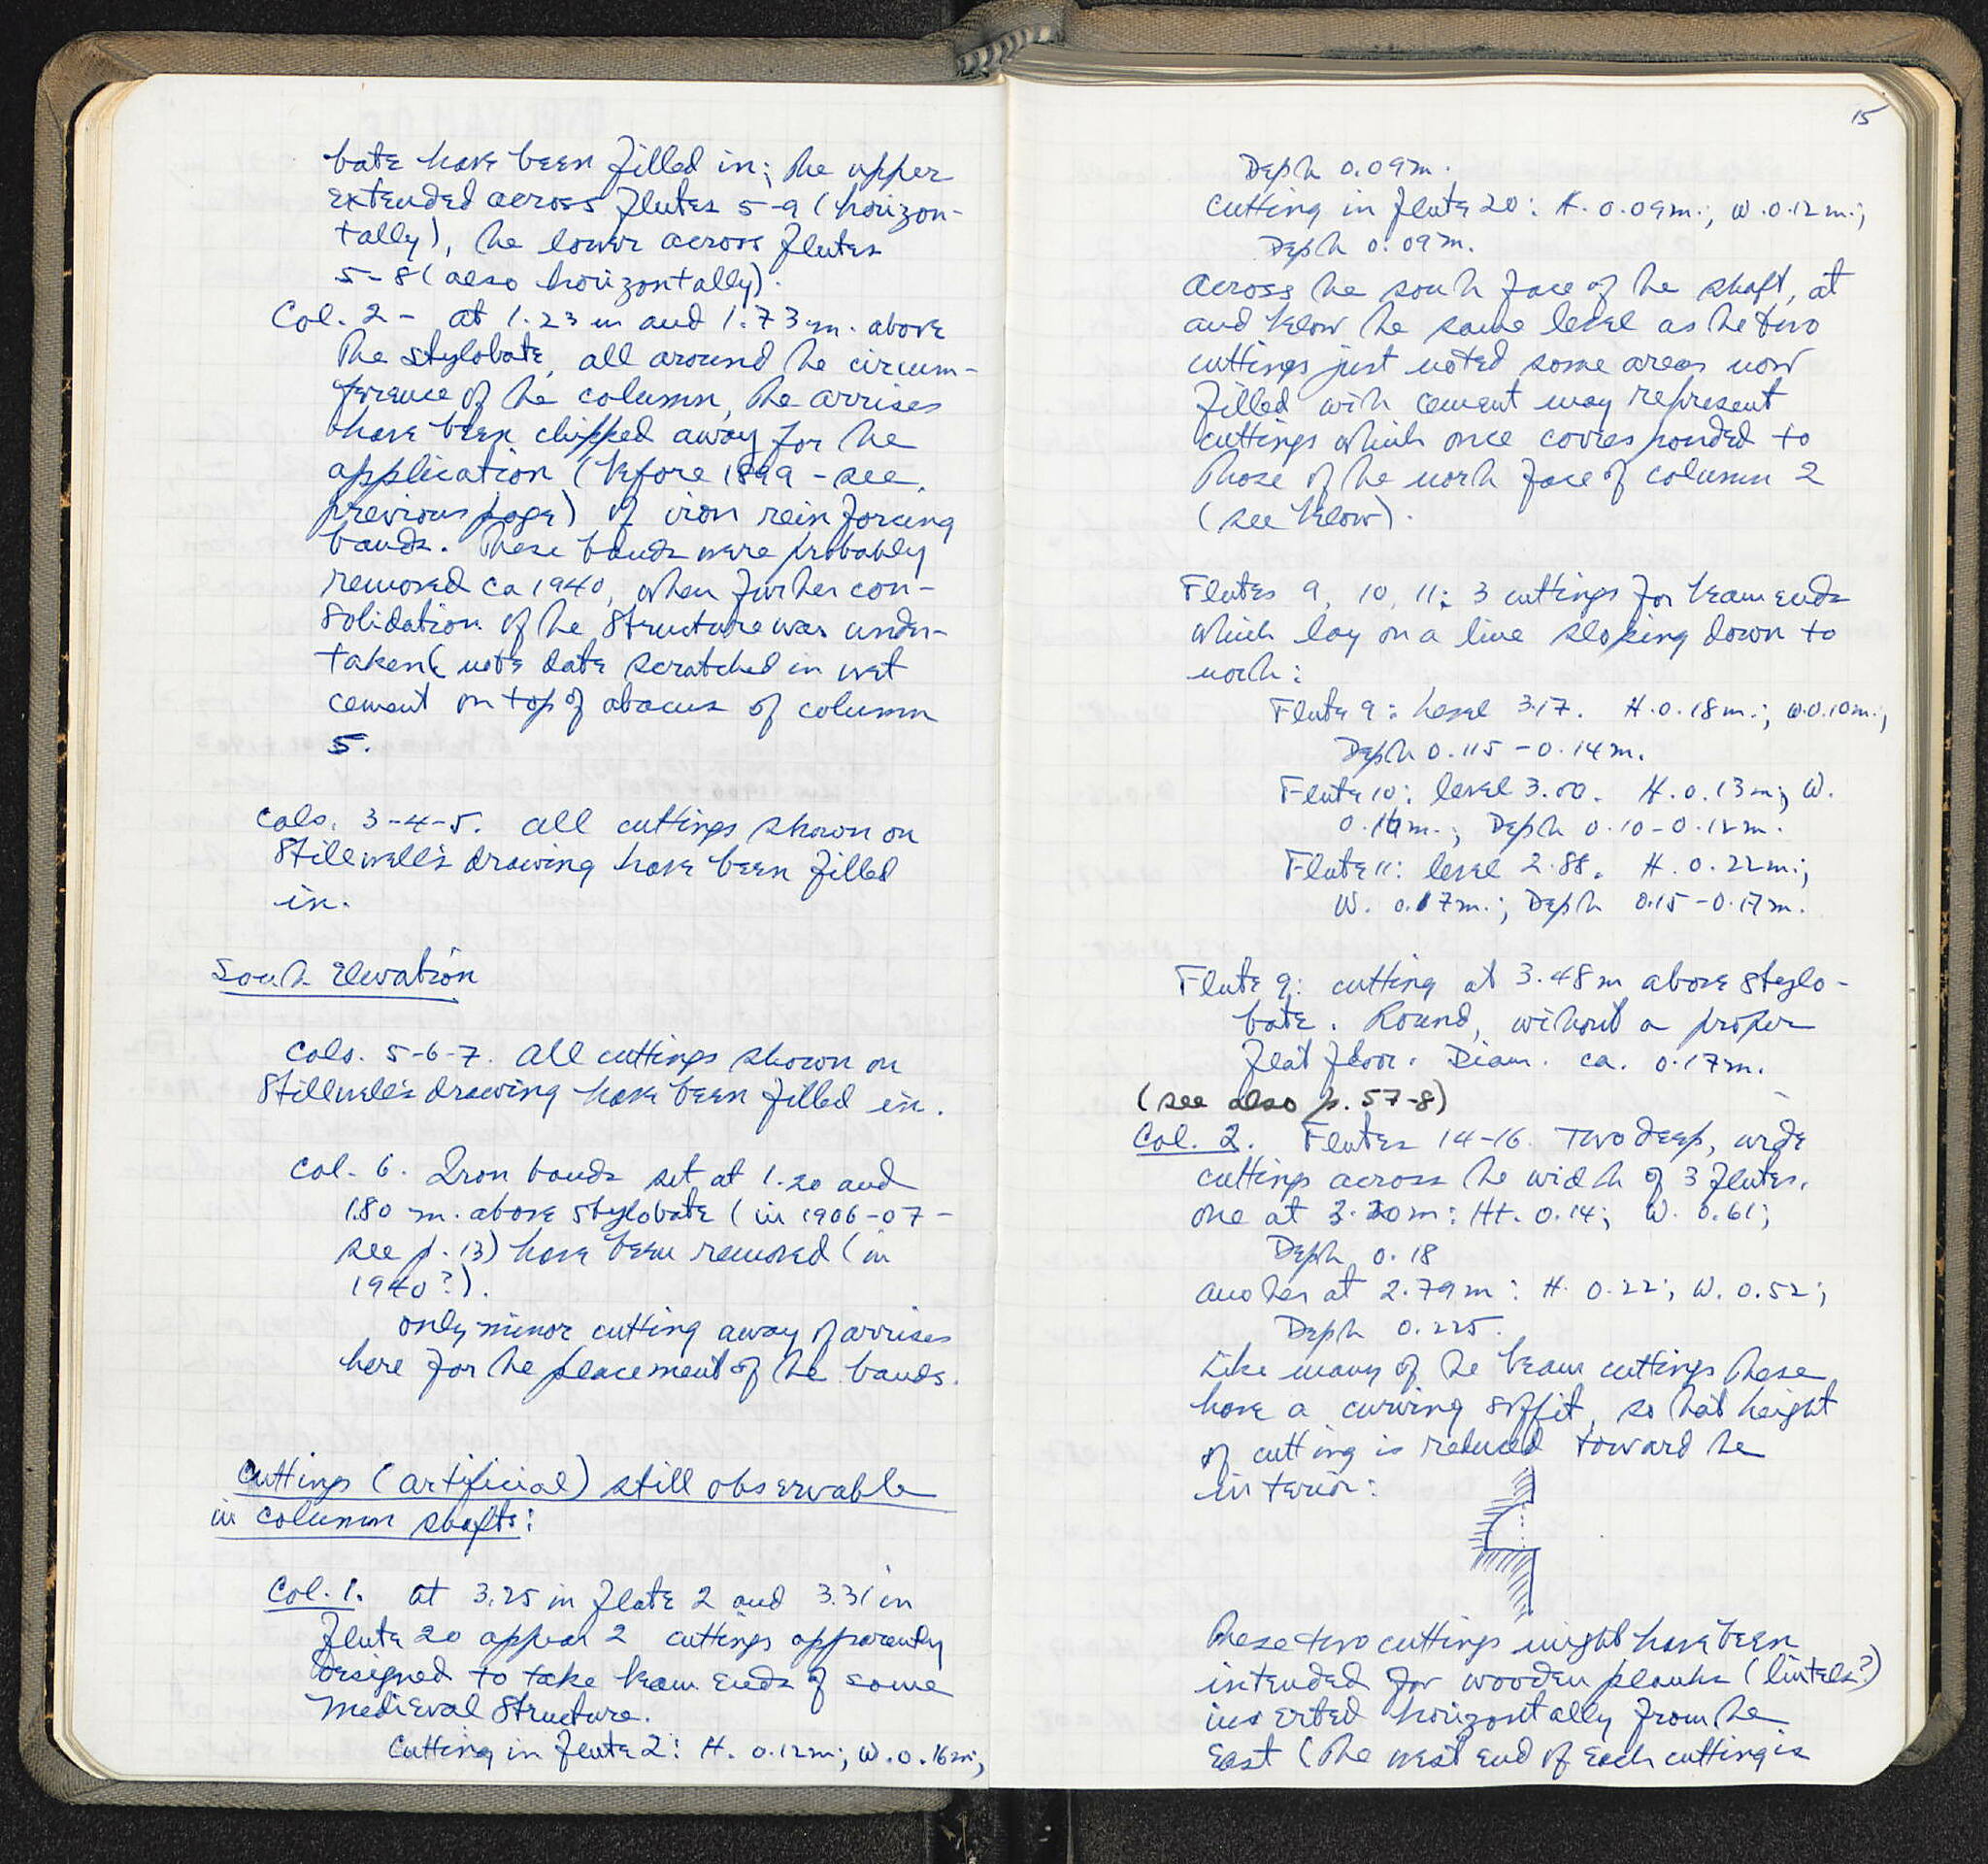 bate have been filled in; the upper
extended across flutes 5-9 (horizon-
tally), the lower across flutes
5-8 (also horizontally).
Col. 2 - at 1.23 m and 1.73 m. above
the stylobate, all around the circum-
ference of the column, the arrises
have been chipped away for the
application (before 1899 - see
previous page) of iron reinforcing
bands. These bands were probably
removed ca 1940, when further con-
solidation of the structure was under-
taken (note date scratched in wet
cement on top of abacus of column
5.
Cols. 3-4-5. All cuttings shown on
Stillwell's drawing have been filled
in.
South Elevation
Cols. 5-6-7. All cuttings shown on
Stillwell's drawing have been filled in.
Col. 6. Iron bands set at 1.20 and
1.80 m. above stylobate (in 1906-07 -
see p. 13) have been removed (in
1940?).
only minor cutting away of arrises
here for the placement of the bands.
Cuttings (artificial) still observable
in column shafts:
Col. 1. at 3.25 in flute 2 and 3.31 in
flute 20 appear 2 cuttings apparently
designed to take beam ends of some
Medieval structure.
Cutting in flute 2: H. 0.12m; W. 0.16m;
15
Depth 0.09m.
Cutting in flute 20: H. 0.09m.; W. 0.12m.;
Depth 0.09m.
Across the south face of the shaft, at
and below the same level as the two
cuttings just noted some areas now
filled with cement may represent
cuttings which once corresponded to
those of the north face of column 2
(see below).
Flutes 9, 10, 11: 3 cuttings for beam ends
which lay on a line sloping down to
north:
Flute 9: level 3.17. H. 0.18m.; W. 0.10m.;
Depth 0.115-0.14m.
Flute 10: level 3.00. H. 0.13m; W.
0.16m.; Depth 0.10-0.12m.
Flute 11: level 2.88. H. 0.22m;
W. 0.17m.; Depth 0.15-0.17m.
Flute 9: cutting at 3.48m above stylo-
bate. Round, without a proper
flat floor. Diam. ca. 0.17m.
(see also p. 57-8)
Col. 2. Flutes 14-16. Two deep, wide
cuttings across the width of 3 flutes.
one at 3.30m: Ht. 0.14; W. 0.61;
Depth 0.18
another at 2.79m: H. 0.22; W. 0.52;
Depth 0.225.
Like many of the beam cuttings these
have a curving soffit, so that height
of cutting is reduced toward the
interior:
These two cuttings might have been
intended for wooden planks (lintels?)
inserted horizontally from the
East (the west end of each cutting is